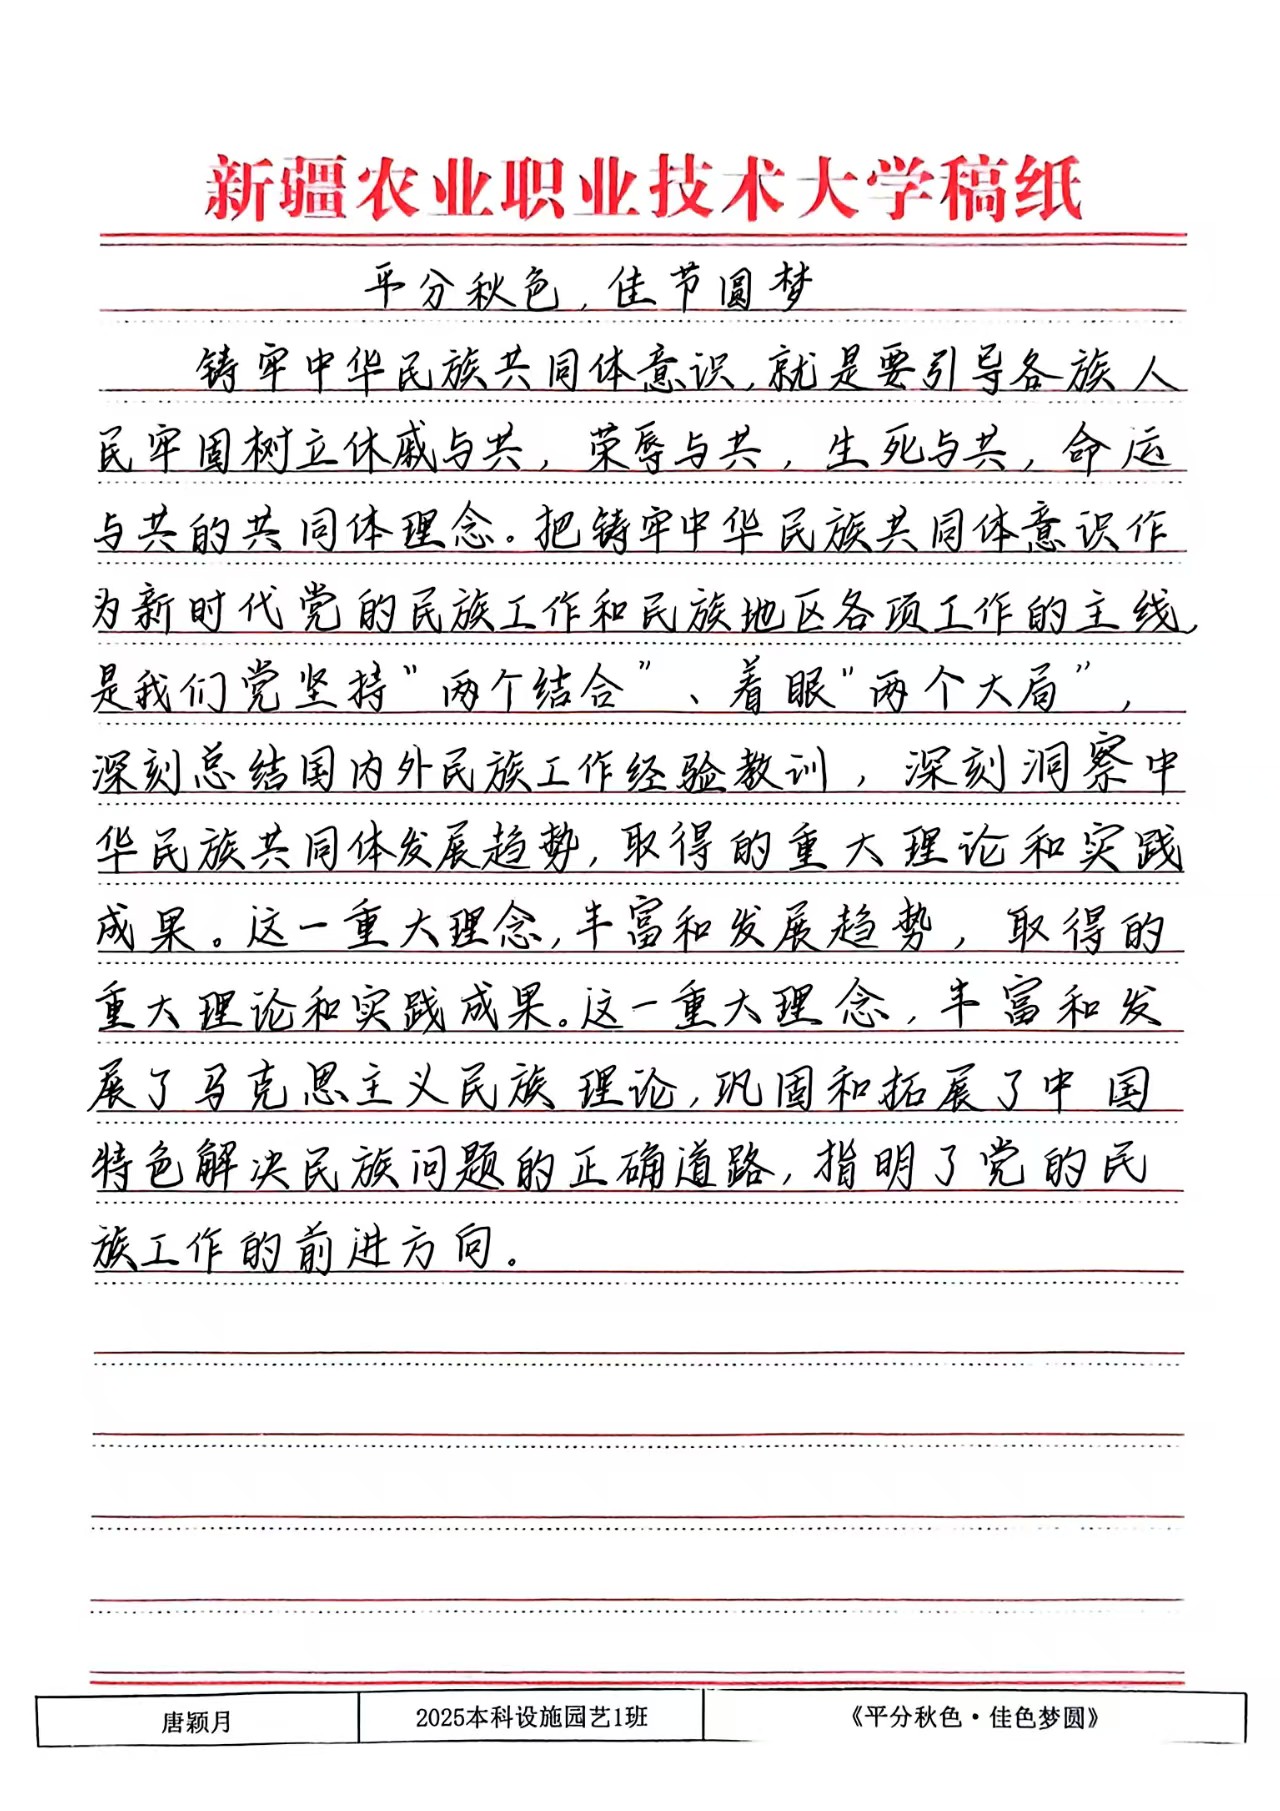 新疆农业职业技术大学稿纸
平分秋色，佳节圆梦
铸牢中华民族共同体意识，就是要引导各族人
民牢固树立休戚与共，荣辱与共，生死与共，命运
与共的共同体理念。把铸牢中华民族共同体意识作
为新时代党的民族工作和民族地区各项工作的主线，
是我们党坚持“两个结合”、着眼“两个大局”，
深刻总结国内外民族工作经验教训，深刻洞察中
华民族共同体发展趋势，取得的重大理论和实践
成果。这一重大理念，丰富和发展趋势，取得的
重大理论和实践成果。这一重大理念，丰富和发
展了马克思主义民族理论，巩固和拓展了中国
特色解决民族问题的正确道路，指明了党的民
族工作的前进方向。
唐颖月
2025本科设施园艺1班
《平分秋色·佳色梦圆》